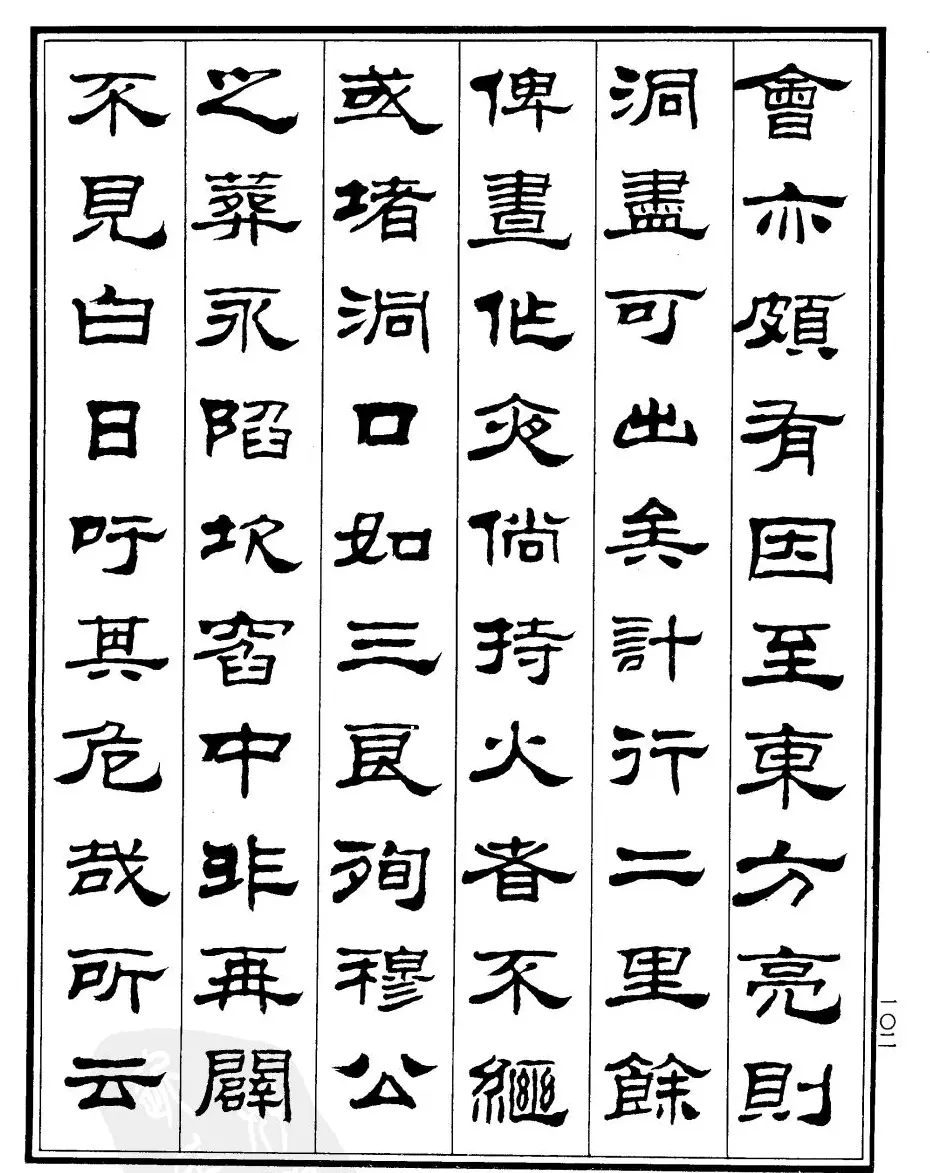 會亦頗有因至東方亮則
洞盡可出矣計行二里餘
俾晝作夜倘持火者不繼
或堵洞口如三良殉穆公
之葬永陷坎窞中非再闢
不見白日吁其危哉所云
一〇二